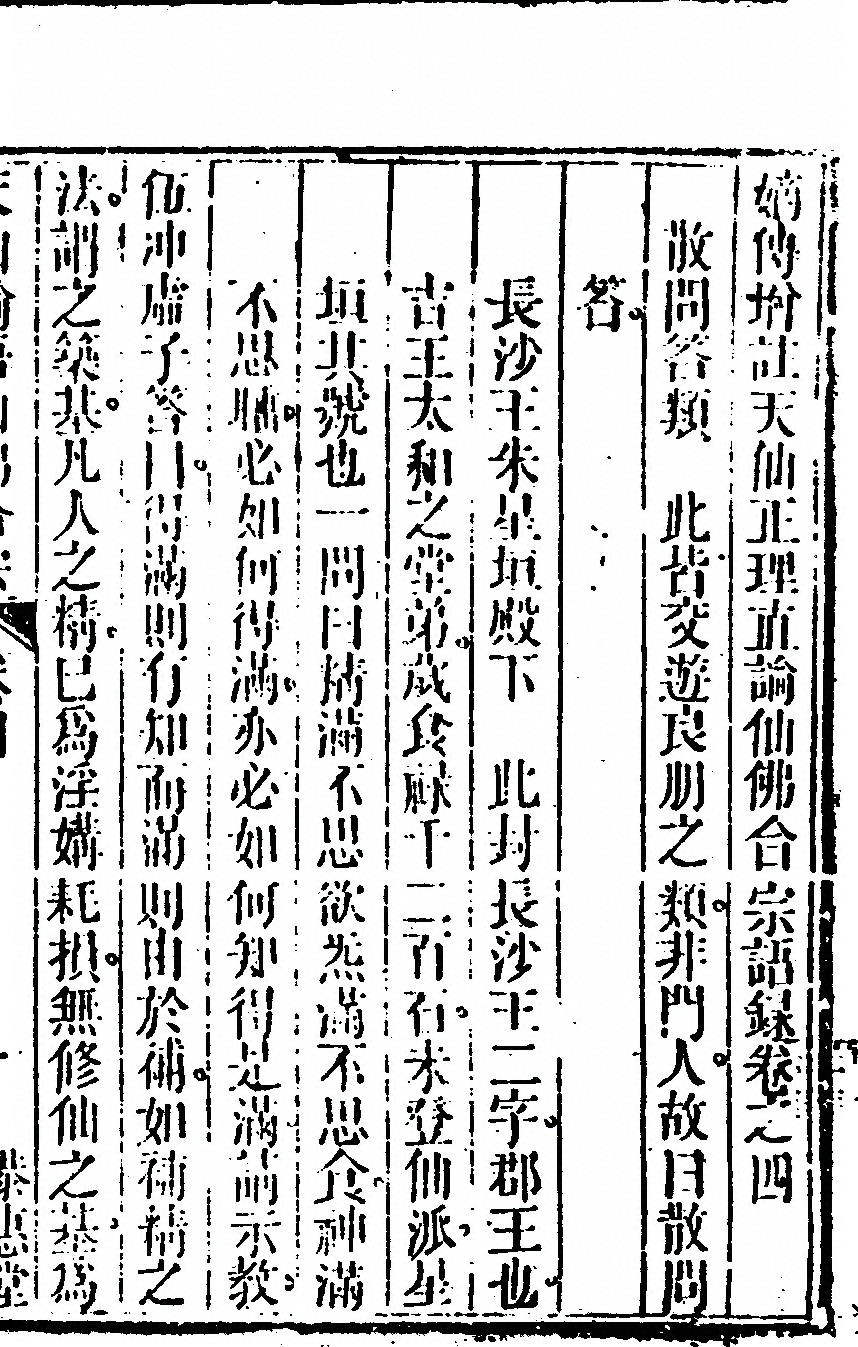 嫡傳增註天仙正理直論仙佛合宗語錄卷之四
散問答類　此皆交遊良朋之類。非門人。故曰散問
答。
長沙王朱星垣殿下　此封長沙王二字。郡王也。
吉王太和之堂弟。歲食祿千二百石。未登仙派。星
垣其號也一問曰精滿不思欲炁滿不思食。神滿
不思睡。必如何得滿。亦必如何知得是滿請示教。
伍冲虛子答曰。得滿則有知而滿則由於補。如補精之
法。謂之築基。凡人之精。已爲淫媾耗損。無修仙之基。爲